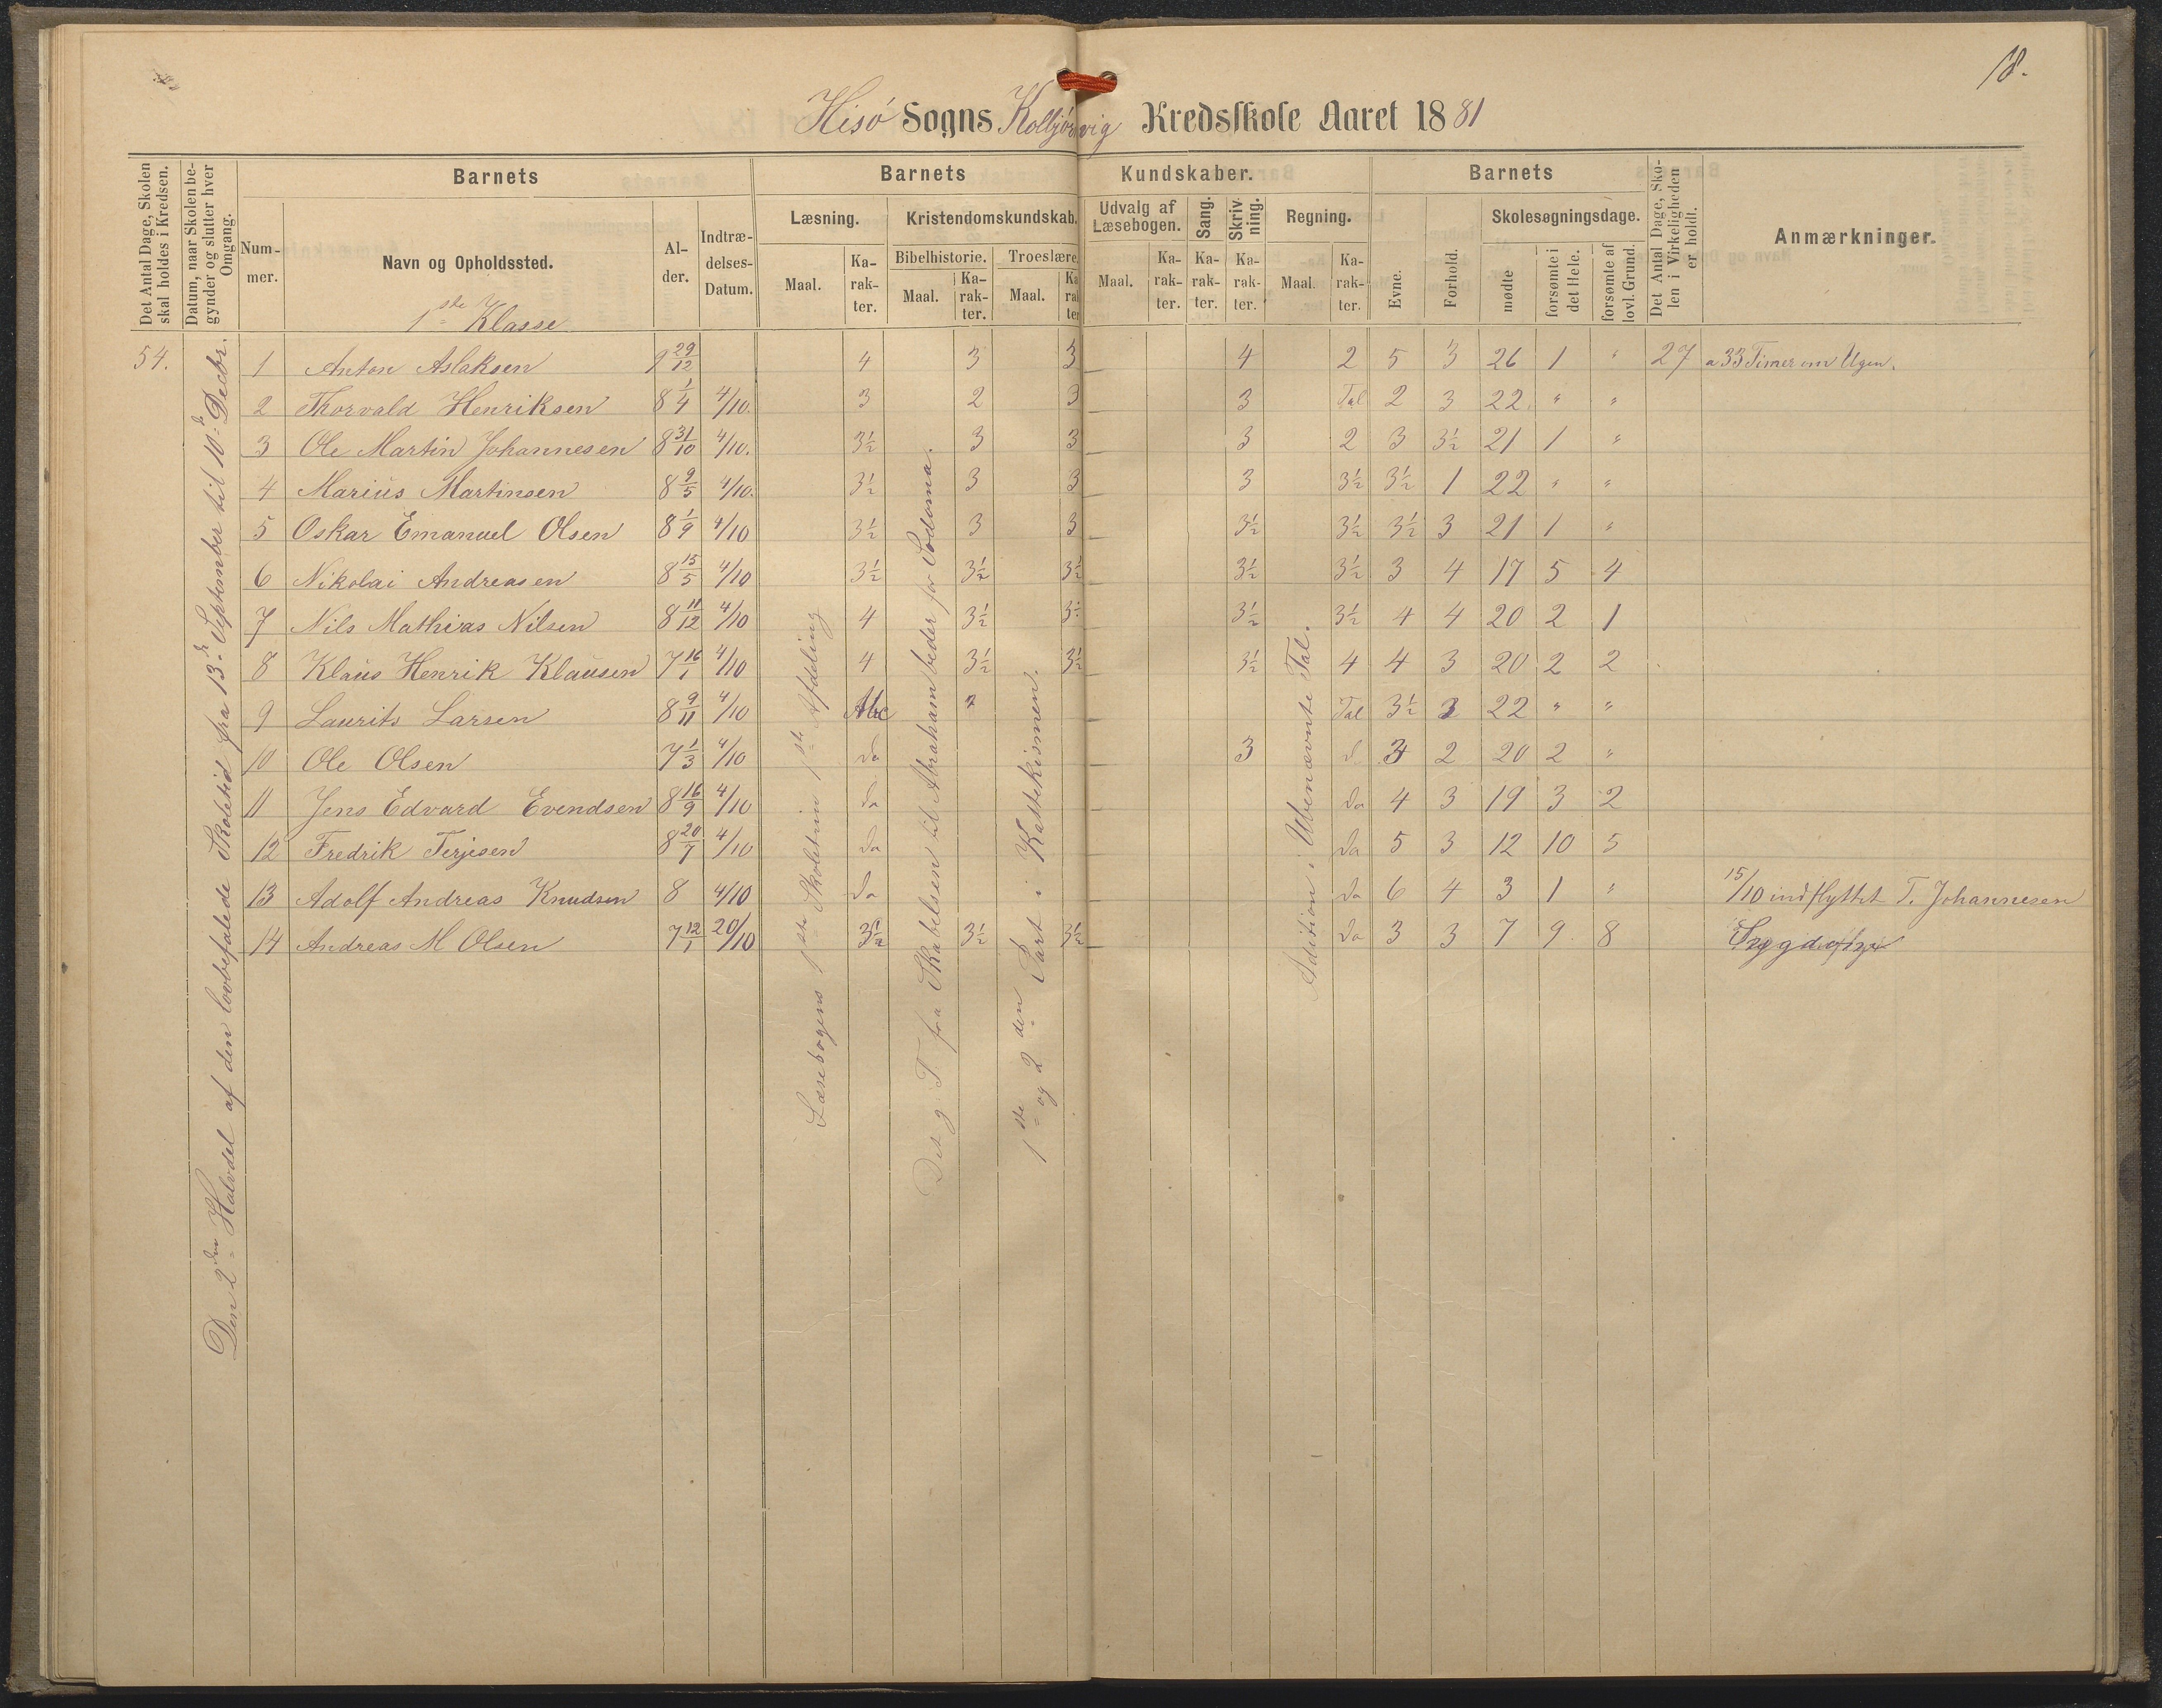 18.
Hisø Sogns Kolbjørnvig Kredsskole Aaret 1881
Det Antal Dage, Skolen skal holdes i Kredsen.
Datum, naar Skolen begynder og slutter hver Omgang.
Barnets
Nummer.
Navn og Opholdssted.
Alder.
Indtrædelses-Datum.
Barnets Kundskaber.
Læsning.
Maal.
Karakter.
Kristendomskundskab.
Bibelhistorie.
Maal.
Karakter.
Troeslære.
Maal.
Karakter
Udvalg af Læsebogen.
Maal.
Karakter.
Sang.
Karakter.
Skrivning.
Karakter.
Regning.
Maal.
Karakter.
Barnets
Evne.
Forhold.
Skolesøgningsdage.
mødte
forsømte i det Hele.
forsømte af lovl. Grund.
Det Antal Dage, Skolen i Virkeligheden er holdt.
Anmærkninger.
1ste Klasse
54.
Den 2den Halvdel af den lovbefalede Skoletid fra 13de September til 10de Decbr.
Læsebogens 1ste Skoletrin 1ste Afdeling
Det g. T. fra Skabelsen til Abraham beder for Sodoma.
1ste og 2den Part i Kattekismen.
Adition i Ubenævnte Tal.
1 Anton Aslaksen 9 29/12 4 3 3 4 2 5 3 26 1 " 27 a 33 Timer om Ugen.
2 Thorvald Henriksen 8 1/4 4/10. 3 2 3 3 Tal 2 3 22 " "
3 Ole Martin Johannesen 8 31/10 4/10. 3½ 3 3 3 2 3 3½ 21 1 "
4 Marius Martinsen 8 9/5 4/10. 3½ 3 3 3 3½ 3½ 1 22 " "
5 Oskar Emanuel Olsen 8 1/9 4/10 3½ 3 3 3½ 3½ 3½ 3 21 1 "
6 Nikolai Andreasen 8 15/5 4/10 3½ 3½ 3½ 3½ 3½ 3 4 17 5 4
7 Nils Mathias Nilsen 8 11/12 4/10 4 3½ 3½ 3½ 3½ 4 4 20 2 1
8 Klaus Henrik Klausen 7 16/1 4/10 4 3½ 3½ 3½ 4 4 3 20 2 2
9 Laurits Larsen 8 9/11 4/10 Abc " Tal 3½ 3 22 " "
10 Ole Olsen 7 1/3 4/10 do 3 d 3 2 20 2 "
11 Jens Edvard Evendsen 8 16/9 4/10 do do 4 3 19 3 2
12 Fredrik Terjesen 8 20/7 4/10 do do 5 3 12 10 5
13 Adolf Andreas Knudsen 8 4/10 do do 6 4 3 1 " 15/10 indflyttet T. Johannesen
14 Andreas M Olsen 7 12/1 20/10 3½ 3½ 3½ do 3 3 7 9 8